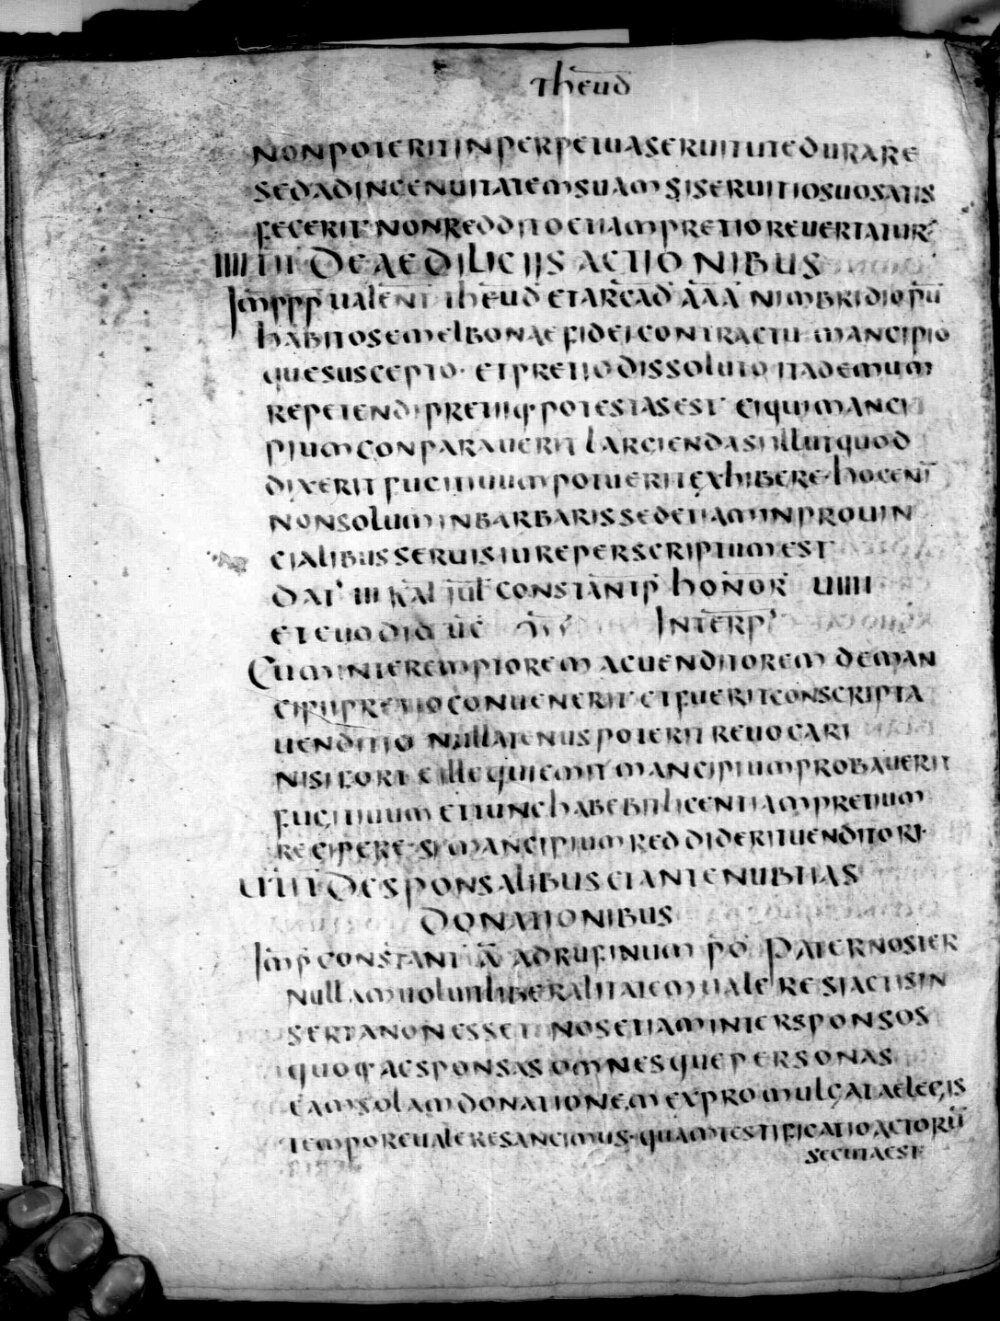 theud
NONPOTERITINPERPETUASERUITUTEDURARE
SEDADINGENUITATEMSUAMSISERUITIOSUOSATIS
FECERIT NONREDDITOETIAMPRETIOREUERTATUR
IIIIIII DEAEDILICIISACTIONIBUS
IMPPP UALENT THEUD ETARCAD AAA NIMBRIDIO PU
HABITOSEMELBONAEFIDEICONTRACTU MANCIPIO
QUESUSCEPTO· ETPRETIODISSOLUTO ITADEMUM
REPETENDIPRETIIQPOTESTASEST EIQUIMANCI
PIUMCONPARAUERIT LARGIENDASIILLUTQUOD
DIXERITFUGITIUUMPOTUERITEXHIBERE·HOCENI
NONSOLUMINBARBARISSEDETIAMINPROUIN
CIALIBUSSERUISIUREPERSCRIPTUMEST
DAT III KAL IUL CONSTANTP HONOR UIIII
ETEUODIO UC INTERP
CUMINTEREMPTOREM ACUENDITOREM DEMAN
CIPIIPRETIOCONUENERIT ETFUERITCONSCRIPTA
UENDITIO NULLATENUSPOTERIT REUOCARI
NISIFORTEILLEQUIEMITMANCIPIUMPROBAUERIT
FUGITIUUMETTUNCHABEBITLICENTIAMPRETIUM
RECIPERE·SIMANCIPIUMREDDIDERITUENDITORI·
UIIII DESPONSALIBUSETANTENUBTIAS
DONATIONIBUS
IMP CONSTANT A ADRUFINUM PO PATERNOSTER
NULLAMUOLUITLIBERALITATEMUALERESIACTISIN
SERTANONESSET NOSETIAMINTERSPONSOS
QUOQ AESPONSAS OMNESQUEPERSONAS
EAMSOLAMDONATIONEMEXPROMULGATAELEGIS
TEMPOREUALERESANCIMUS·QUAMTESTIFICATIOACTORU
SECUTAEST